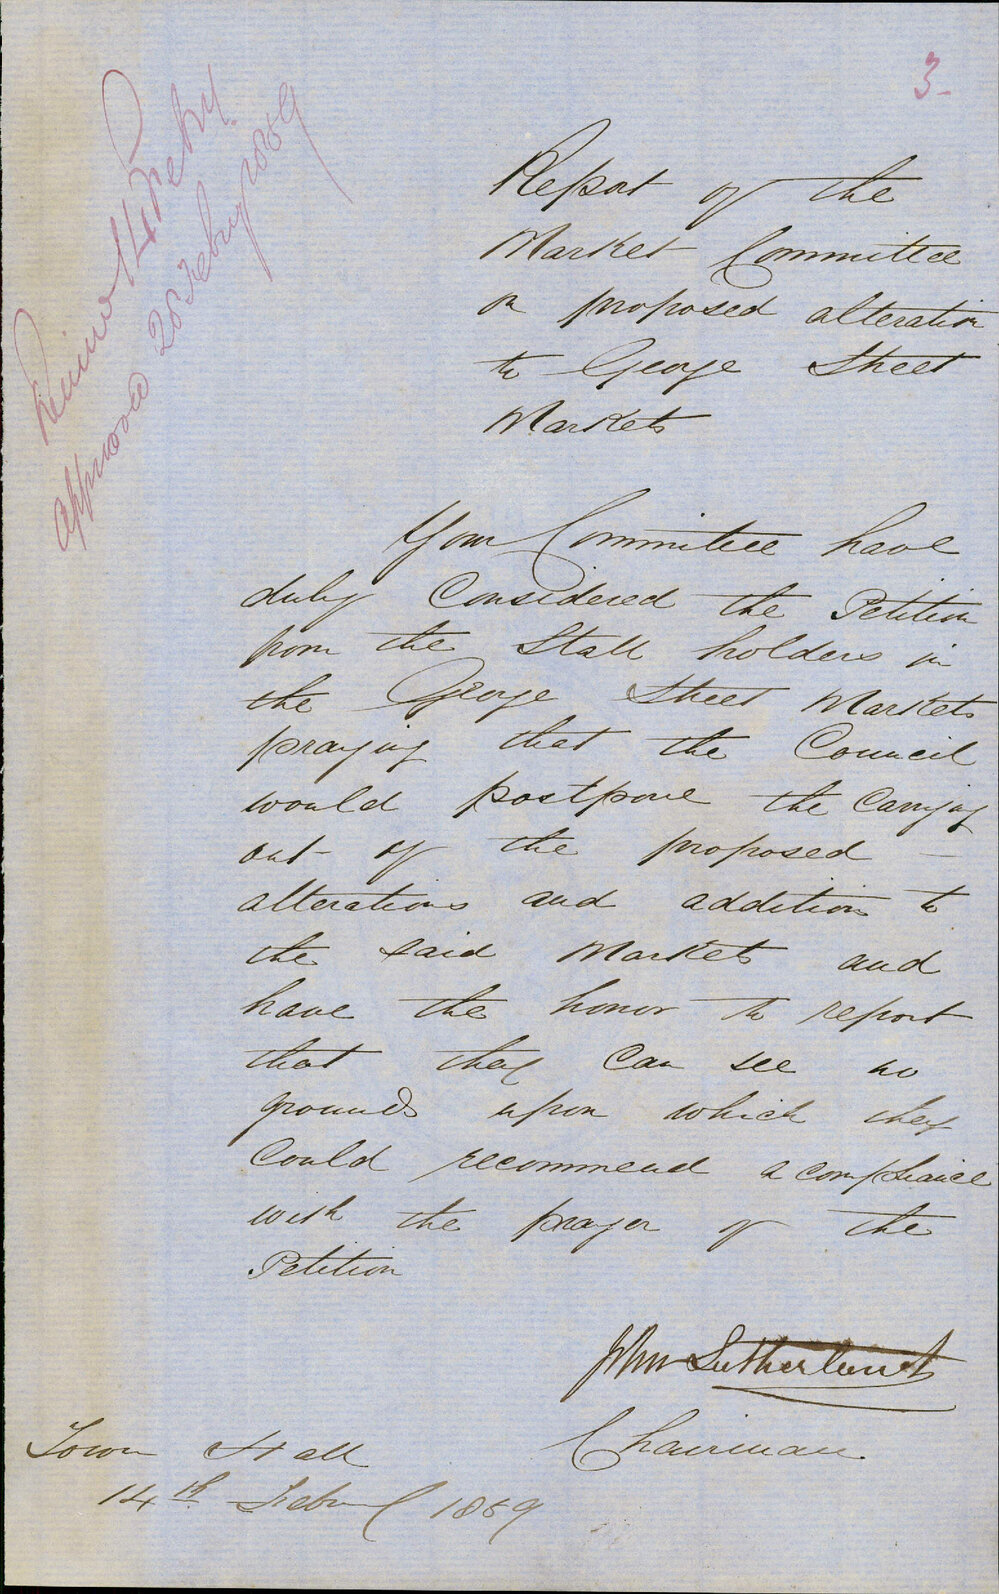 3-
Received 14 Feby.
Approved 28 Feby 1859
Report of the
Market Committee
on proposed alteration
to George Street
Markets
Your Committee have
duly Considered the Petition
from the Stall holders in
the George Street Markets
praying that the Council
would postpone the Carrying
out of the proposed
alterations and addition to
the said Markets and
have the honor to report
that they Can see no
grounds upon which they
Could recommend a compliance
with the prayer of the
Petition
John Sutherland
Chairman
Town Hall
14th Feby 1859